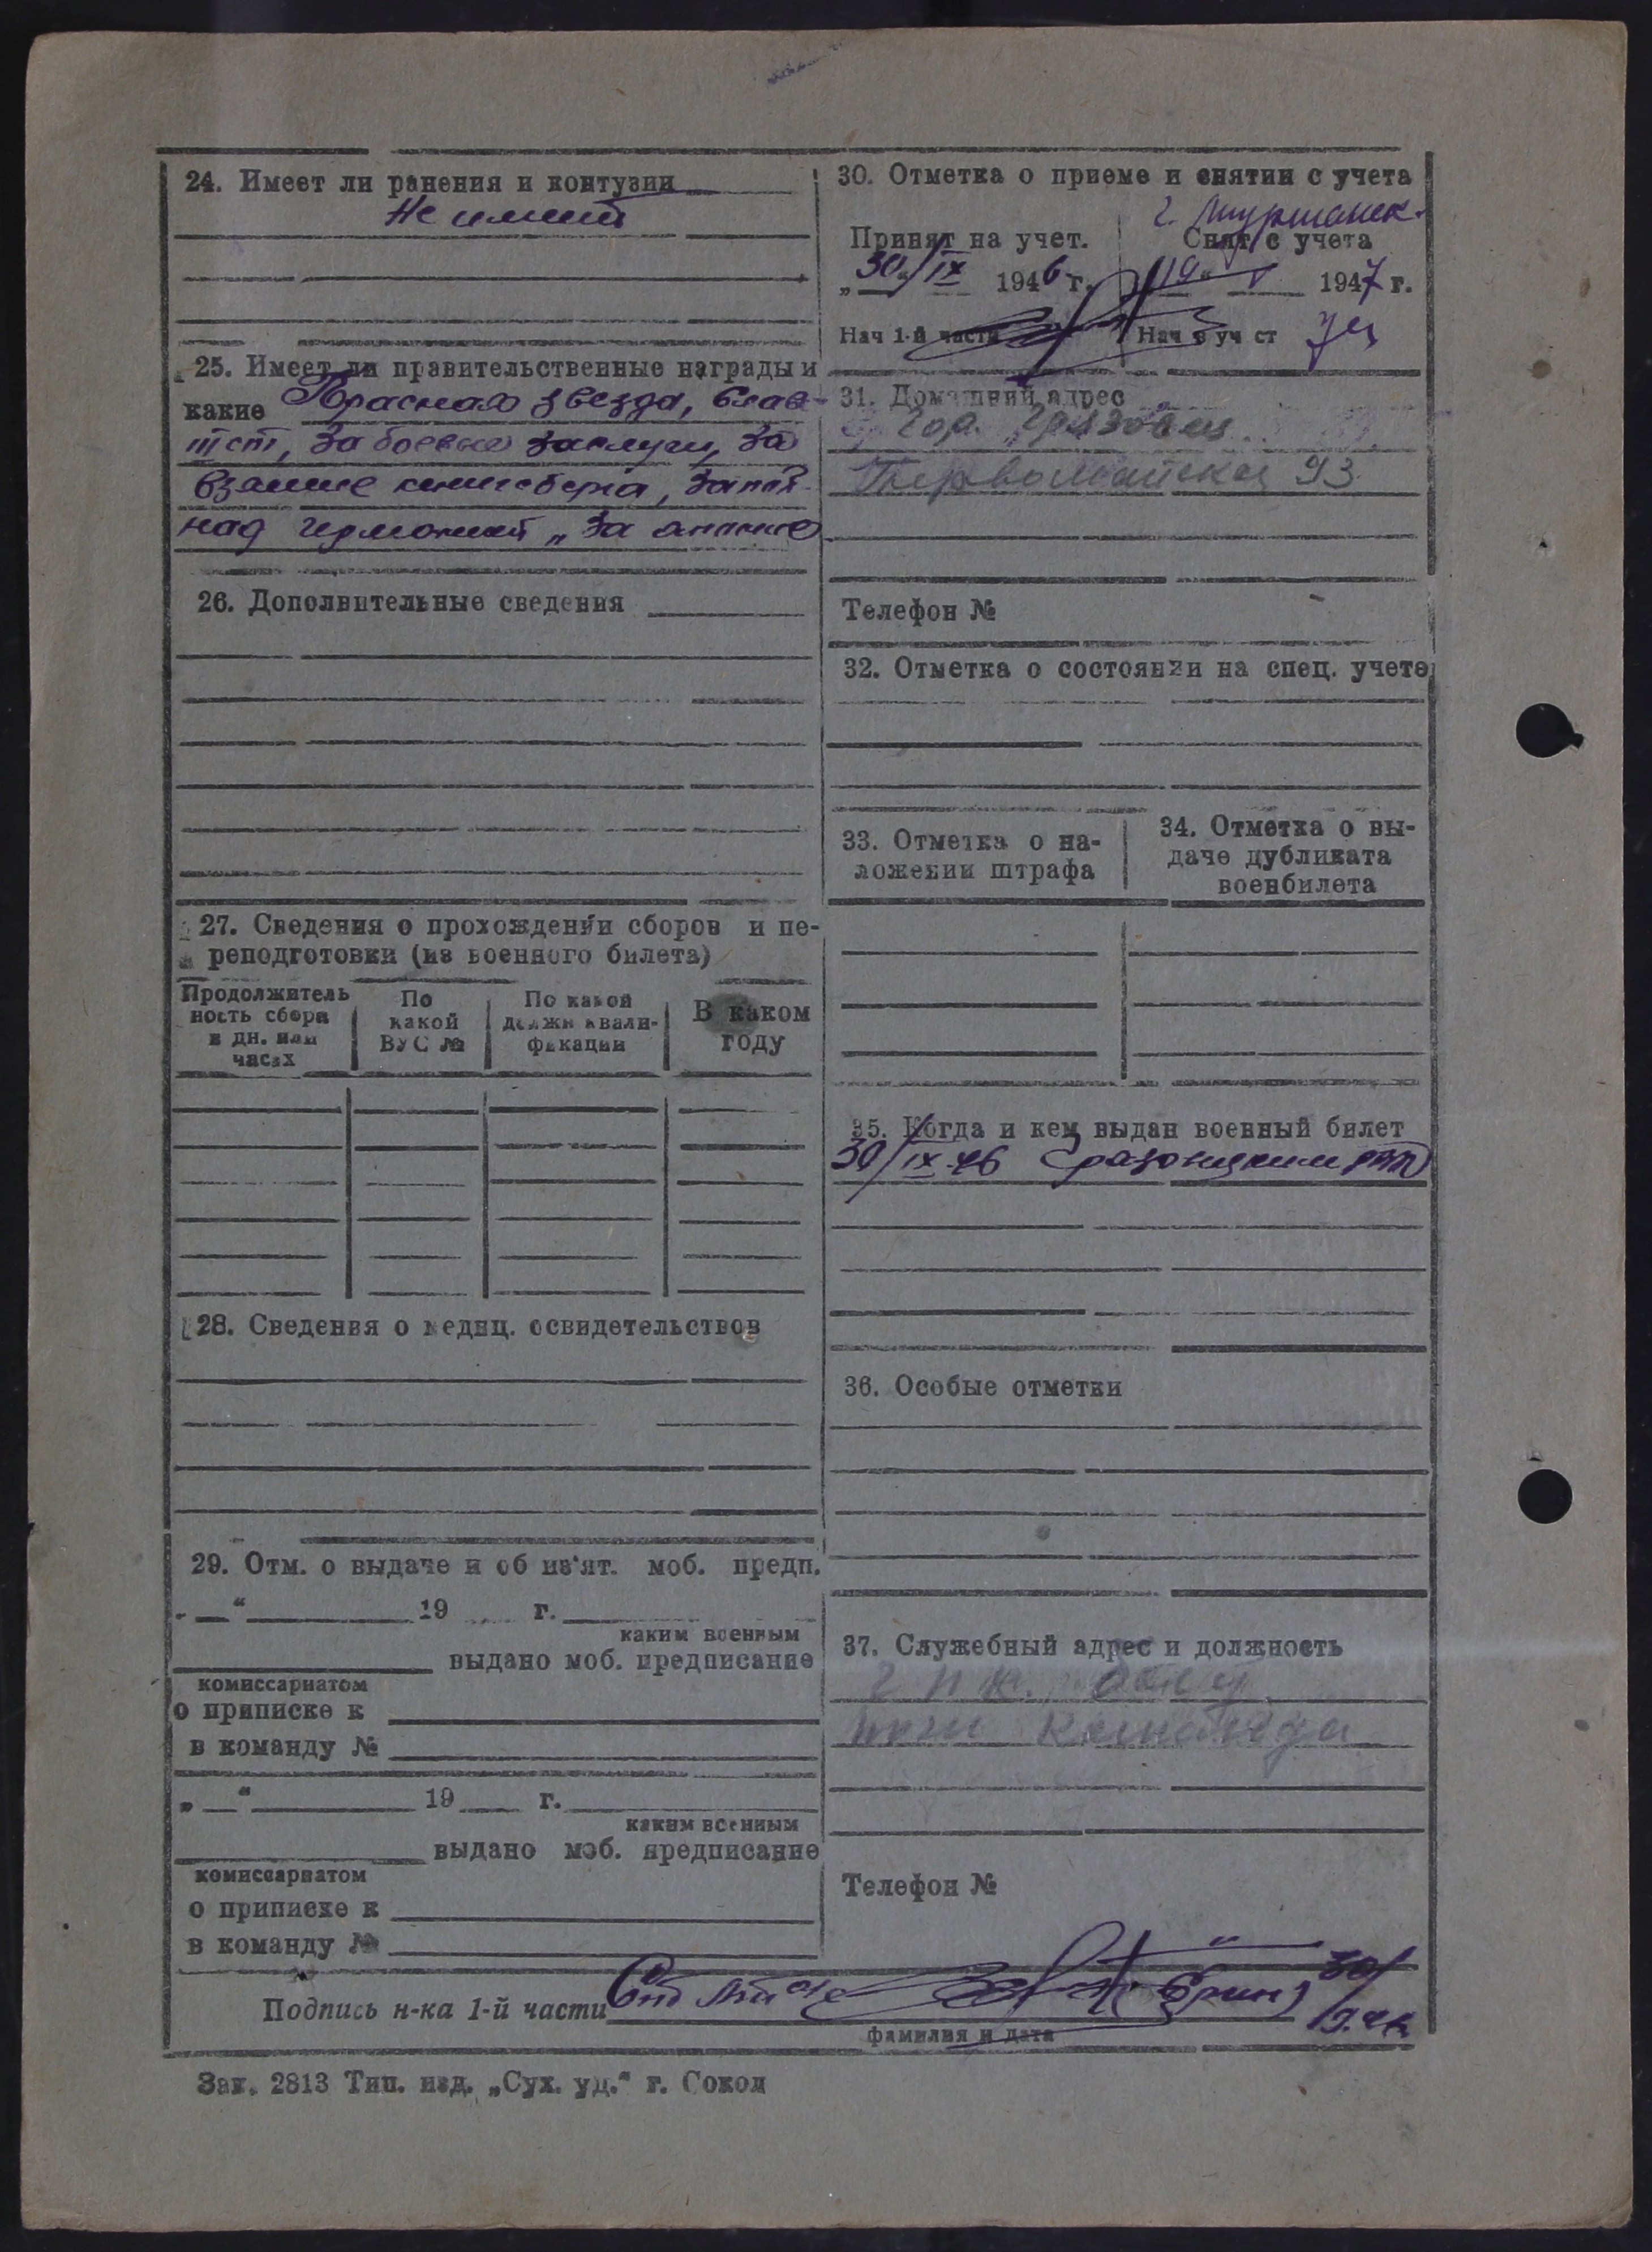 24. Имеет ли ранения и контузии
Не имеет
25. Имеет ли правительственные награды и
какие Красная звезда,
за боевые заслуги, За
взятие кенигсберга,
над германией „За
26. Дополнительные сведения
27. Сведения о прохождении сборов и пе-
реподготовки (из военного билета)
Продолжитель
ность сбора
в дн. или
часах
По
какой
ВУС №
По какой
должн квали-
фикации
В каком
году
28. Сведения о медиц. освидетельствов
29. Отм. о выдаче и об из'ят. моб. предп.
„ “ 19 г.
каким военным
выдано моб. предписание
комиссариатом
о приписке к
в команду №
„ “ 19 г.
каким военным
выдано моб. предписание
комиссариатом
о приписке к
в команду №
30. Отметка о приеме и снятии с учета
г. Мурманск.
Принят на учет.
„30“ IX 1946 г.
Нач 1-й части
Снят с учета
19 1947 г.
Нач в уч ст
31. Домашний адрес
Гор. Грязовец
Первомайская 93
Телефон №
32. Отметка о состоянии на спец. учете
33. Отметка о на-
ложении штрафа
34. Отметка о вы-
даче дубликата
военбилета
35. Когда и кем выдан военный билет
30/IX-46 Грязовецким РВК
36. Особые отметки
37. Служебный адрес и должность
Телефон №
Подпись н-ка 1-й части
фамилия и дата
Зак. 2813 Тип. изд. „Сух. уд.“ г. Сокол